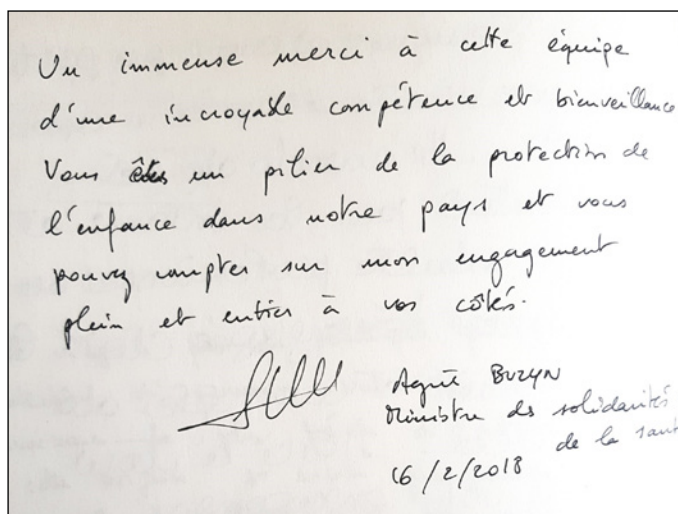 Un immense merci à cette équipe
d'une incroyable compétence et bienveillance
Vous êtes un pilier de la protection de
l'enfance dans notre pays et vous
pouvez compter sur mon engagement
plein et entier à vos côtés.
Agnès BUZYN
Ministre des solidarités
de la santé
16/2/2018